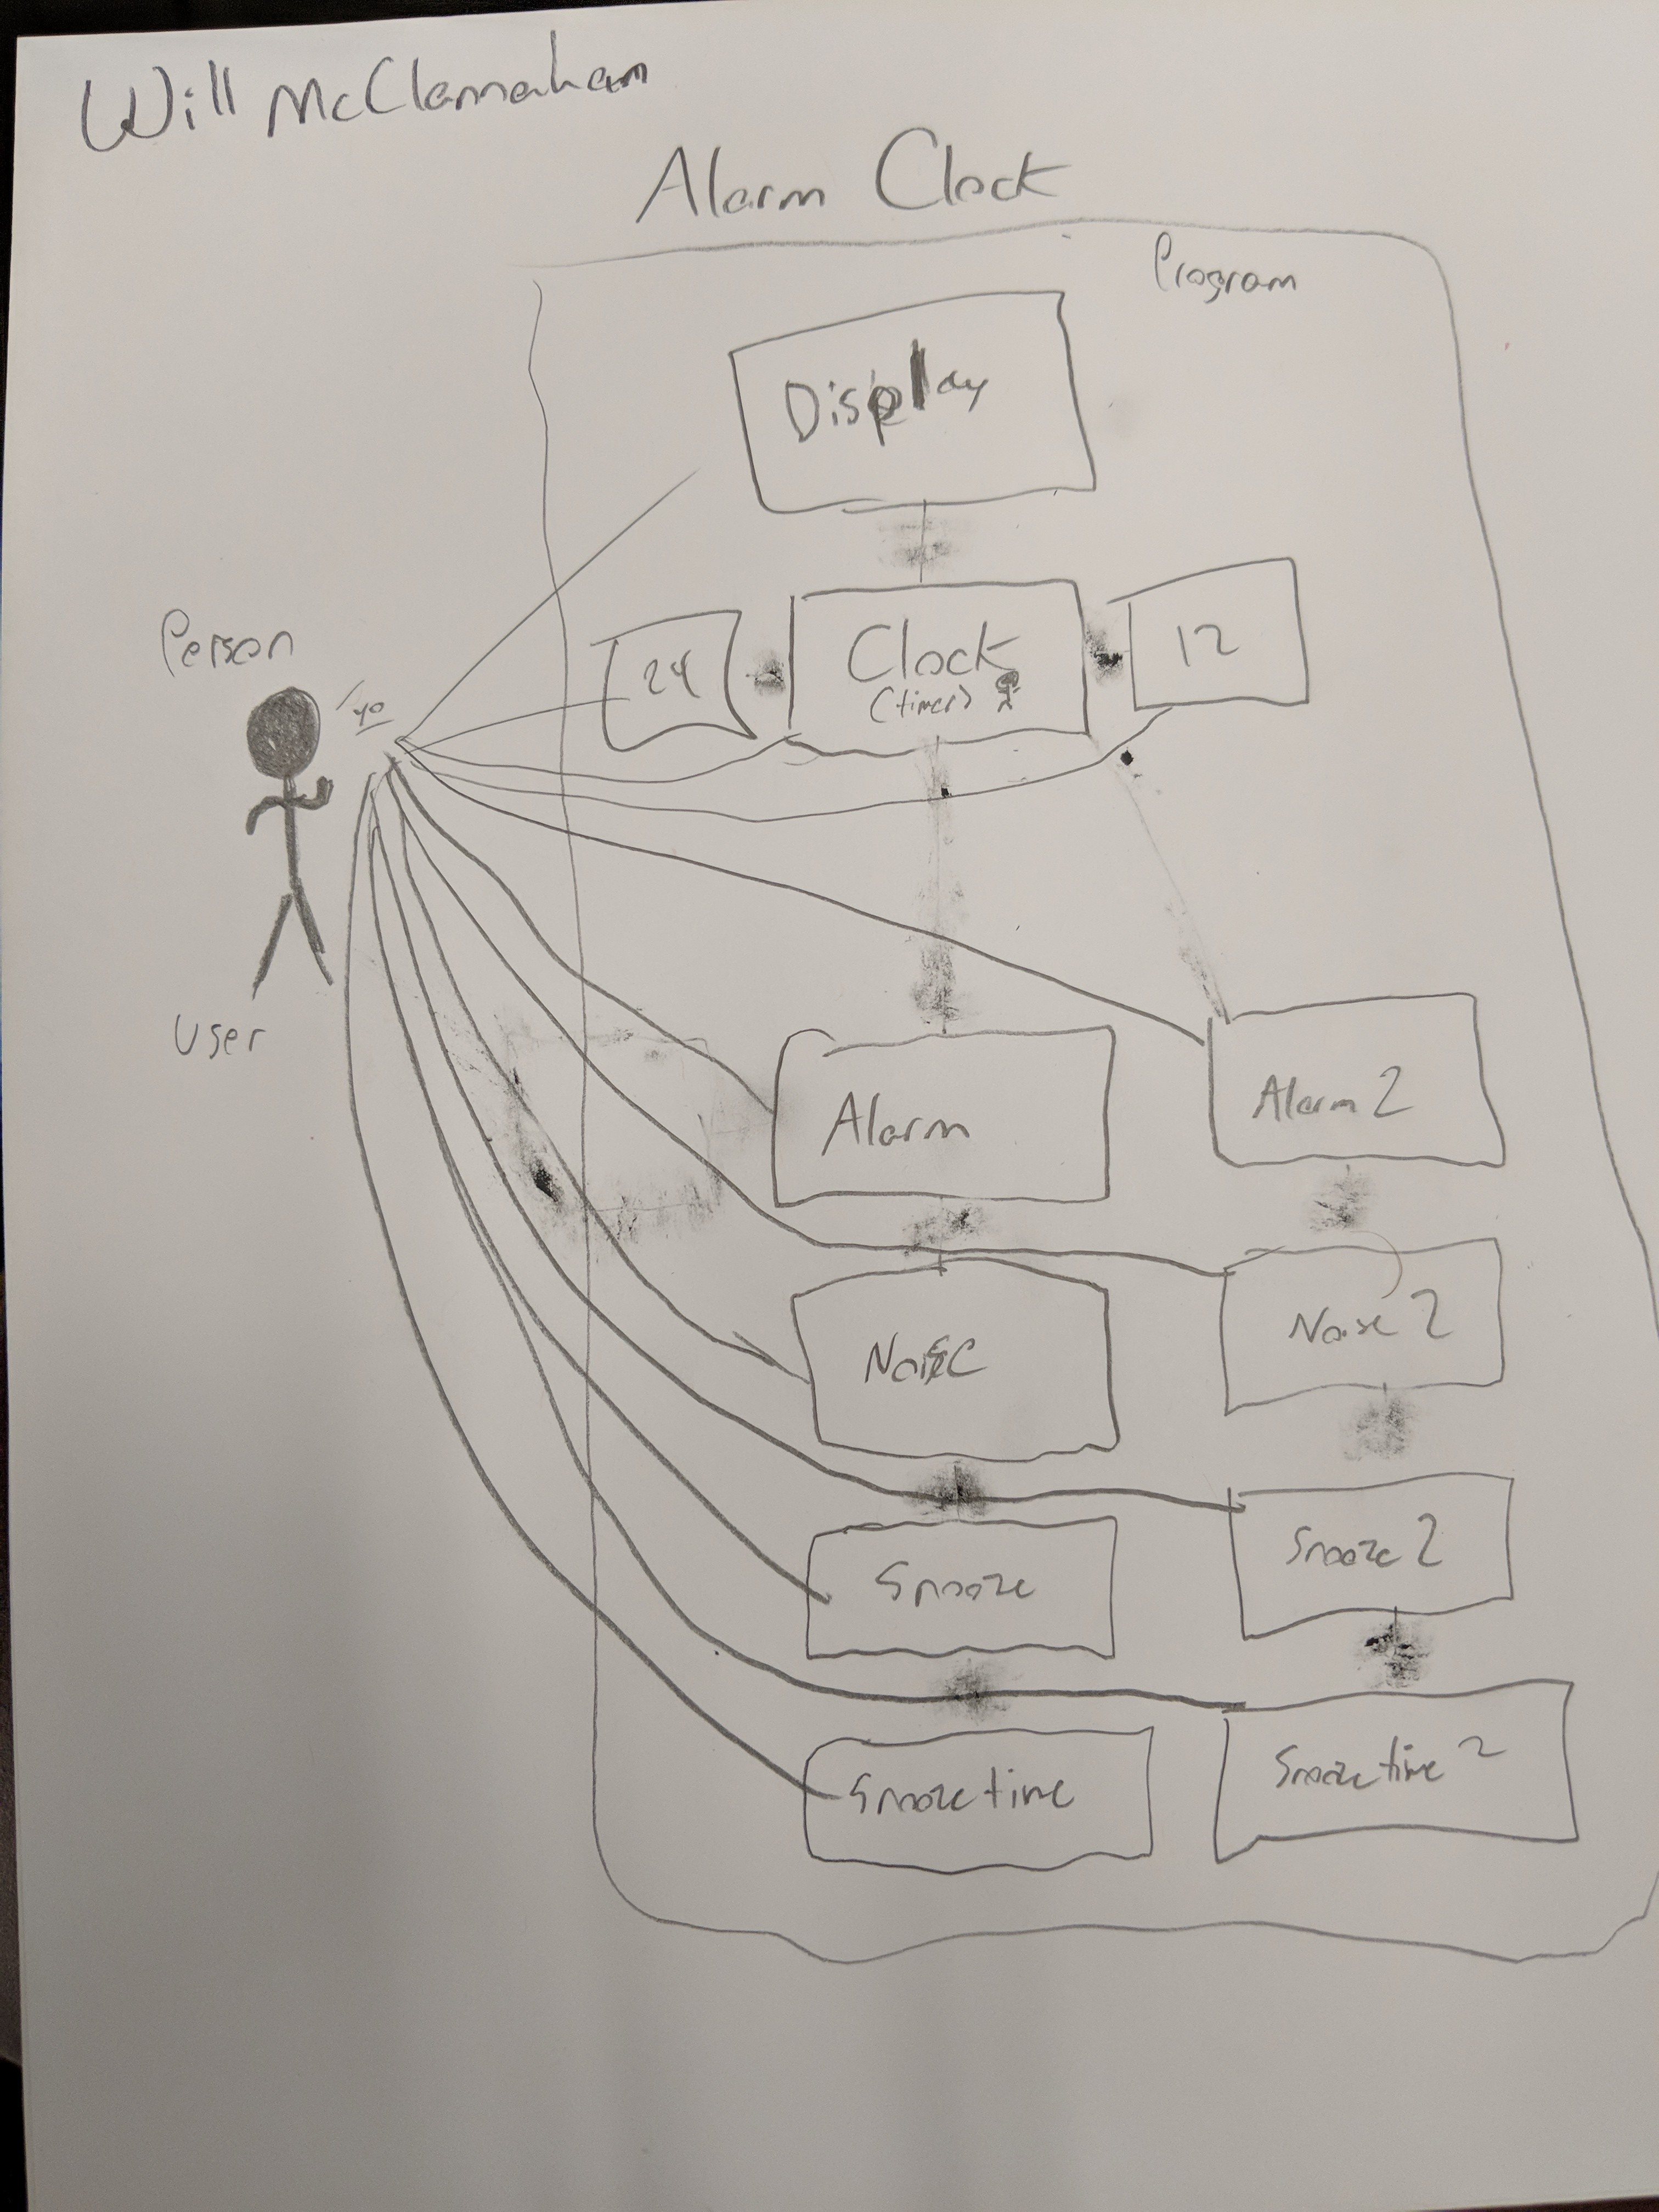 Will McClanahan
Alarm Clock
Program
Display
Person
'yo
24
Clock
(timer)
12
User
Alarm
Alarm 2
Noise
Noise 2
Snooze
Snooze 2
Snooze time
Snooze time 2